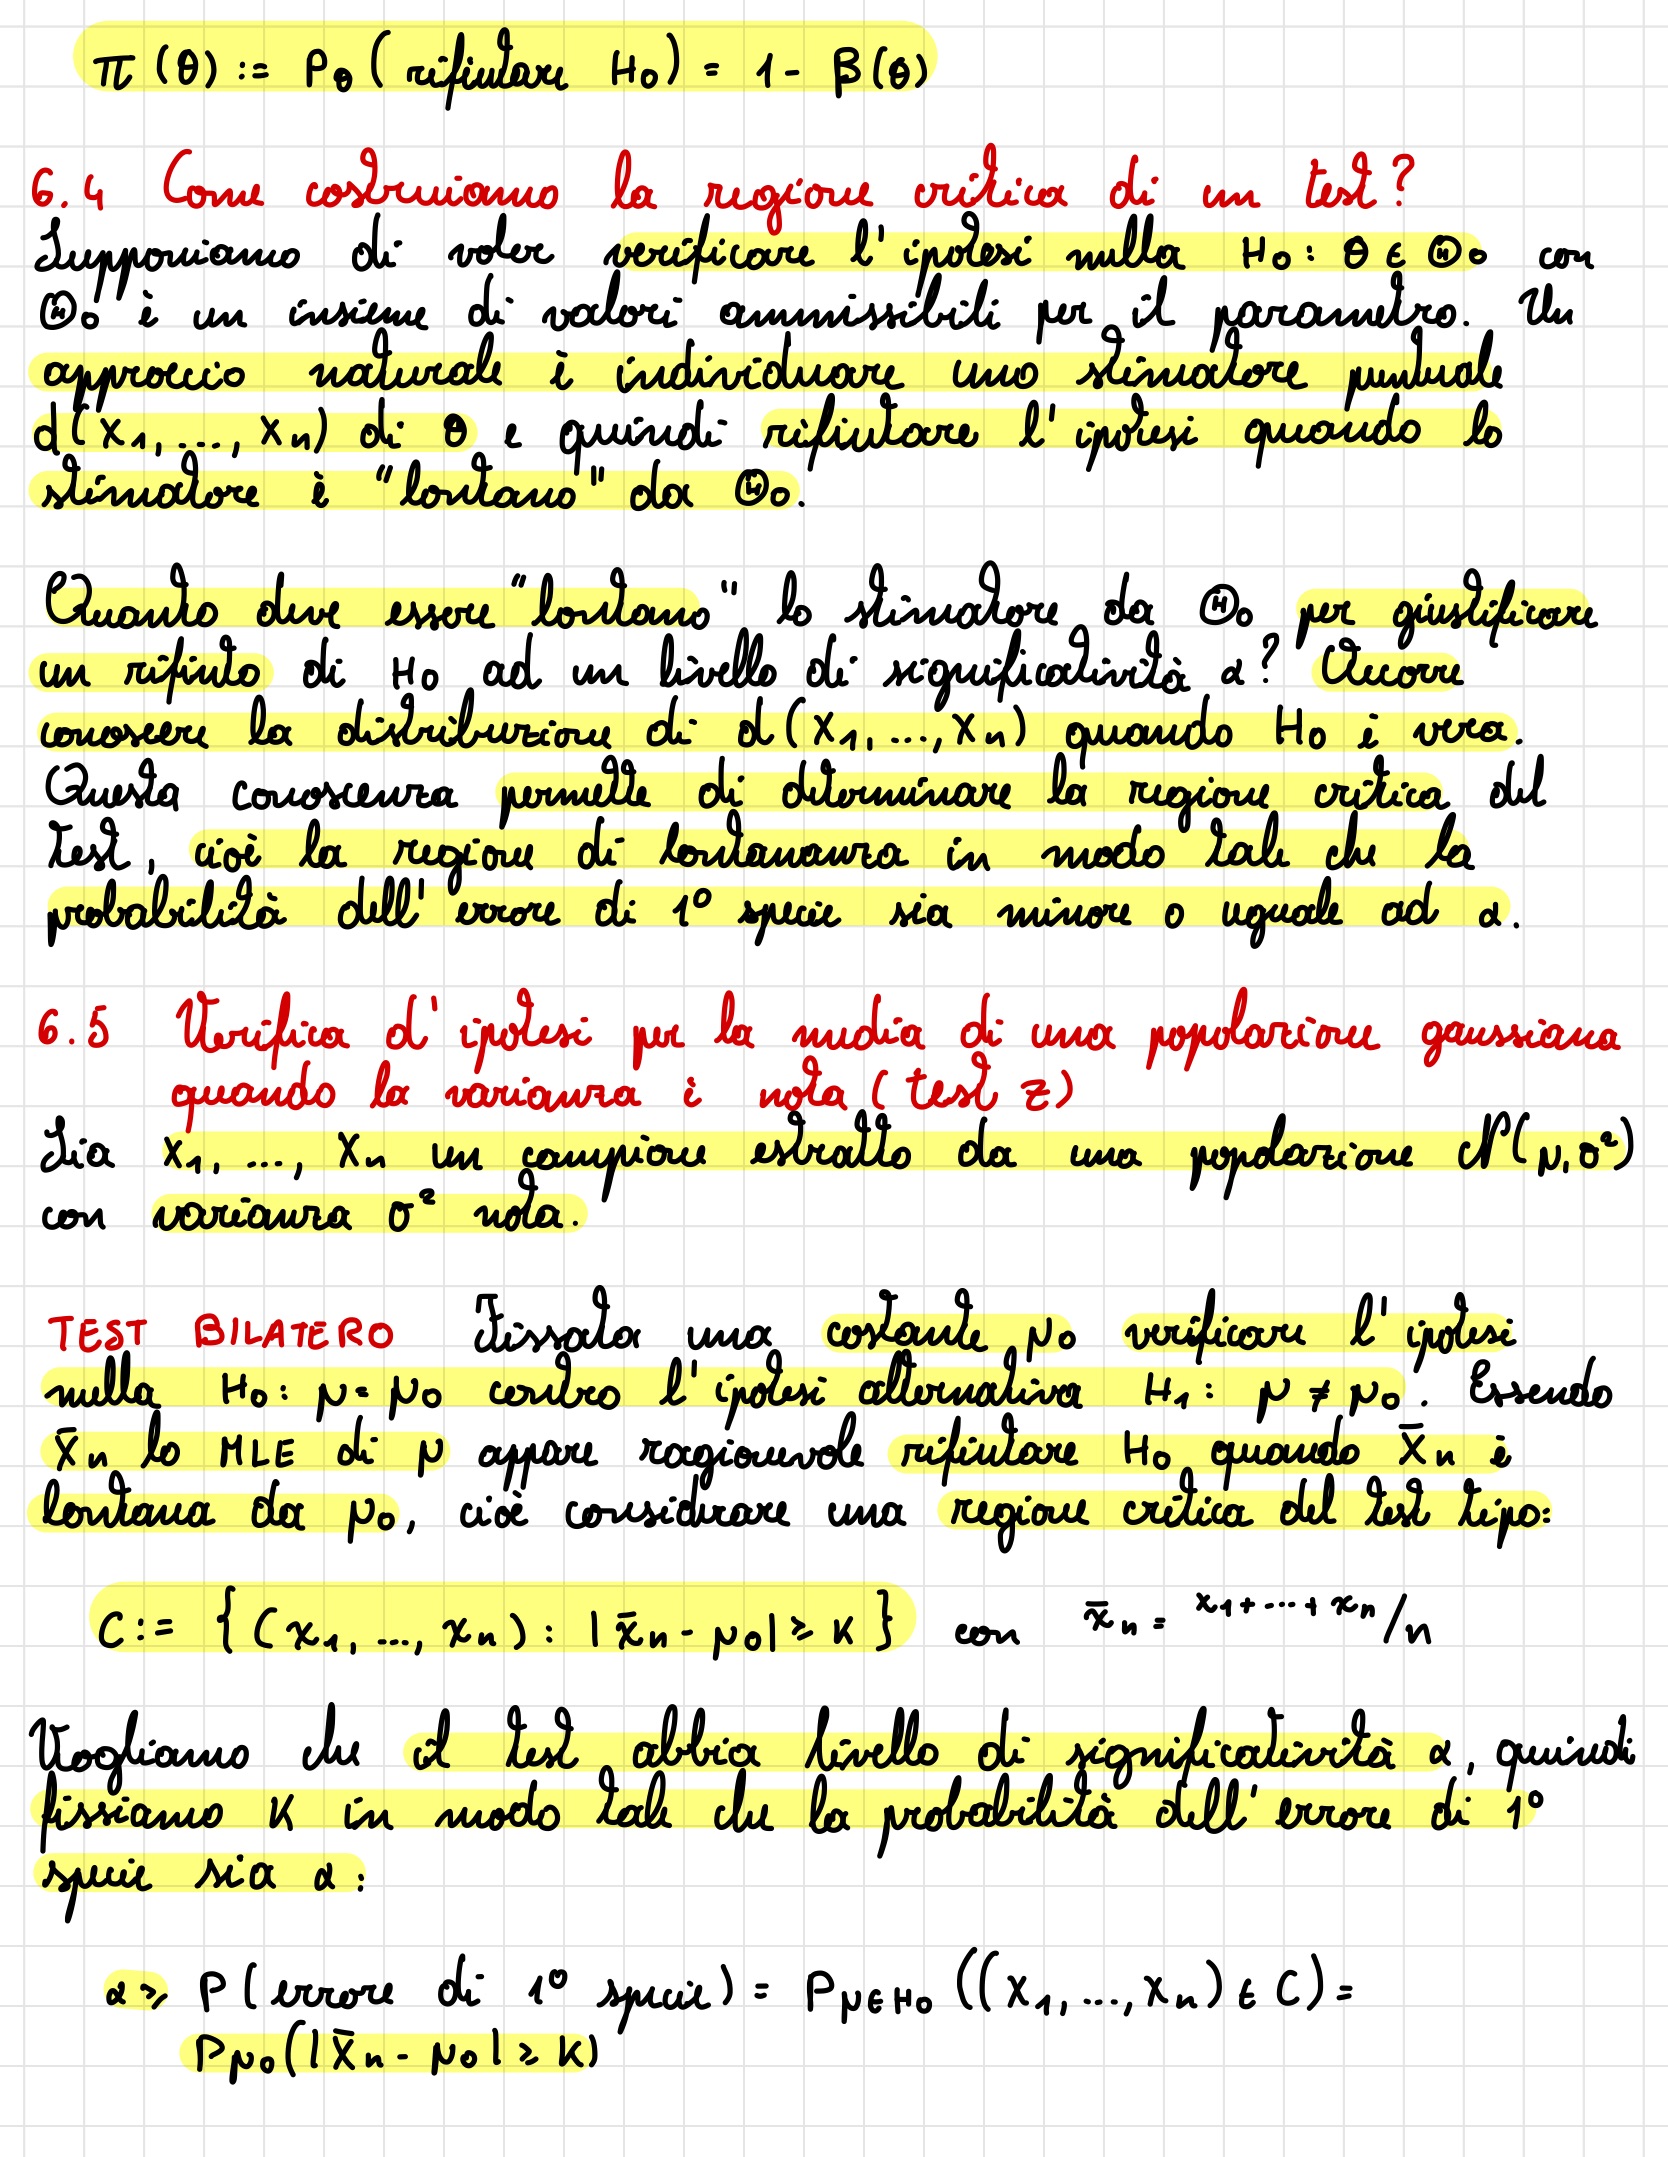 π(θ) := Pθ(rifiutare H₀) = 1 - β(θ)
6.4 Come costruiamo la regione critica di un test?
Supponiamo di voler verificare l'ipotesi nulla H₀: θ ∈ Θ₀ con
Θ₀ è un insieme di valori ammissibili per il parametro. Un
approccio naturale è individuare uno stimatore puntuale
d(X₁, ..., Xₙ) di θ e quindi rifiutare l'ipotesi quando lo
stimatore è "lontano" da Θ₀.
Quanto deve essere "lontano" lo stimatore da Θ₀ per giustificare
un rifiuto di H₀ ad un livello di significatività α? Occorre
conoscere la distribuzione di d(X₁, ..., Xₙ) quando H₀ è vera.
Questa conoscenza permette di determinare la regione critica del
test, cioè la regione di lontananza in modo tale che la
probabilità dell'errore di 1° specie sia minore o uguale ad α.
6.5 Verifica d'ipotesi per la media di una popolazione gaussiana
quando la varianza è nota (test z)
Sia X₁, ..., Xₙ un campione estratto da una popolazione N(μ, σ²)
con varianza σ² nota.
TEST BILATERO Fissata una costante μ₀ verificare l'ipotesi
nulla H₀: μ = μ₀ contro l'ipotesi alternativa H₁: μ ≠ μ₀. Essendo
X̄ₙ lo MLE di μ appare ragionevole rifiutare H₀ quando X̄ₙ è
lontana da μ₀, cioè considerare una regione critica del test tipo:
C := {(x₁, ..., xₙ): |x̄ₙ - μ₀| ≥ K} con x̄ₙ = x₁+...+xₙ/n
Vogliamo che il test abbia livello di significatività α, quindi
fissiamo K in modo tale che la probabilità dell'errore di 1°
specie sia α:
α ≥ P(errore di 1° specie) = P_{μ∈H₀}((X₁, ..., Xₙ) ∈ C) =
P_{μ₀}(|X̄ₙ - μ₀| ≥ K)